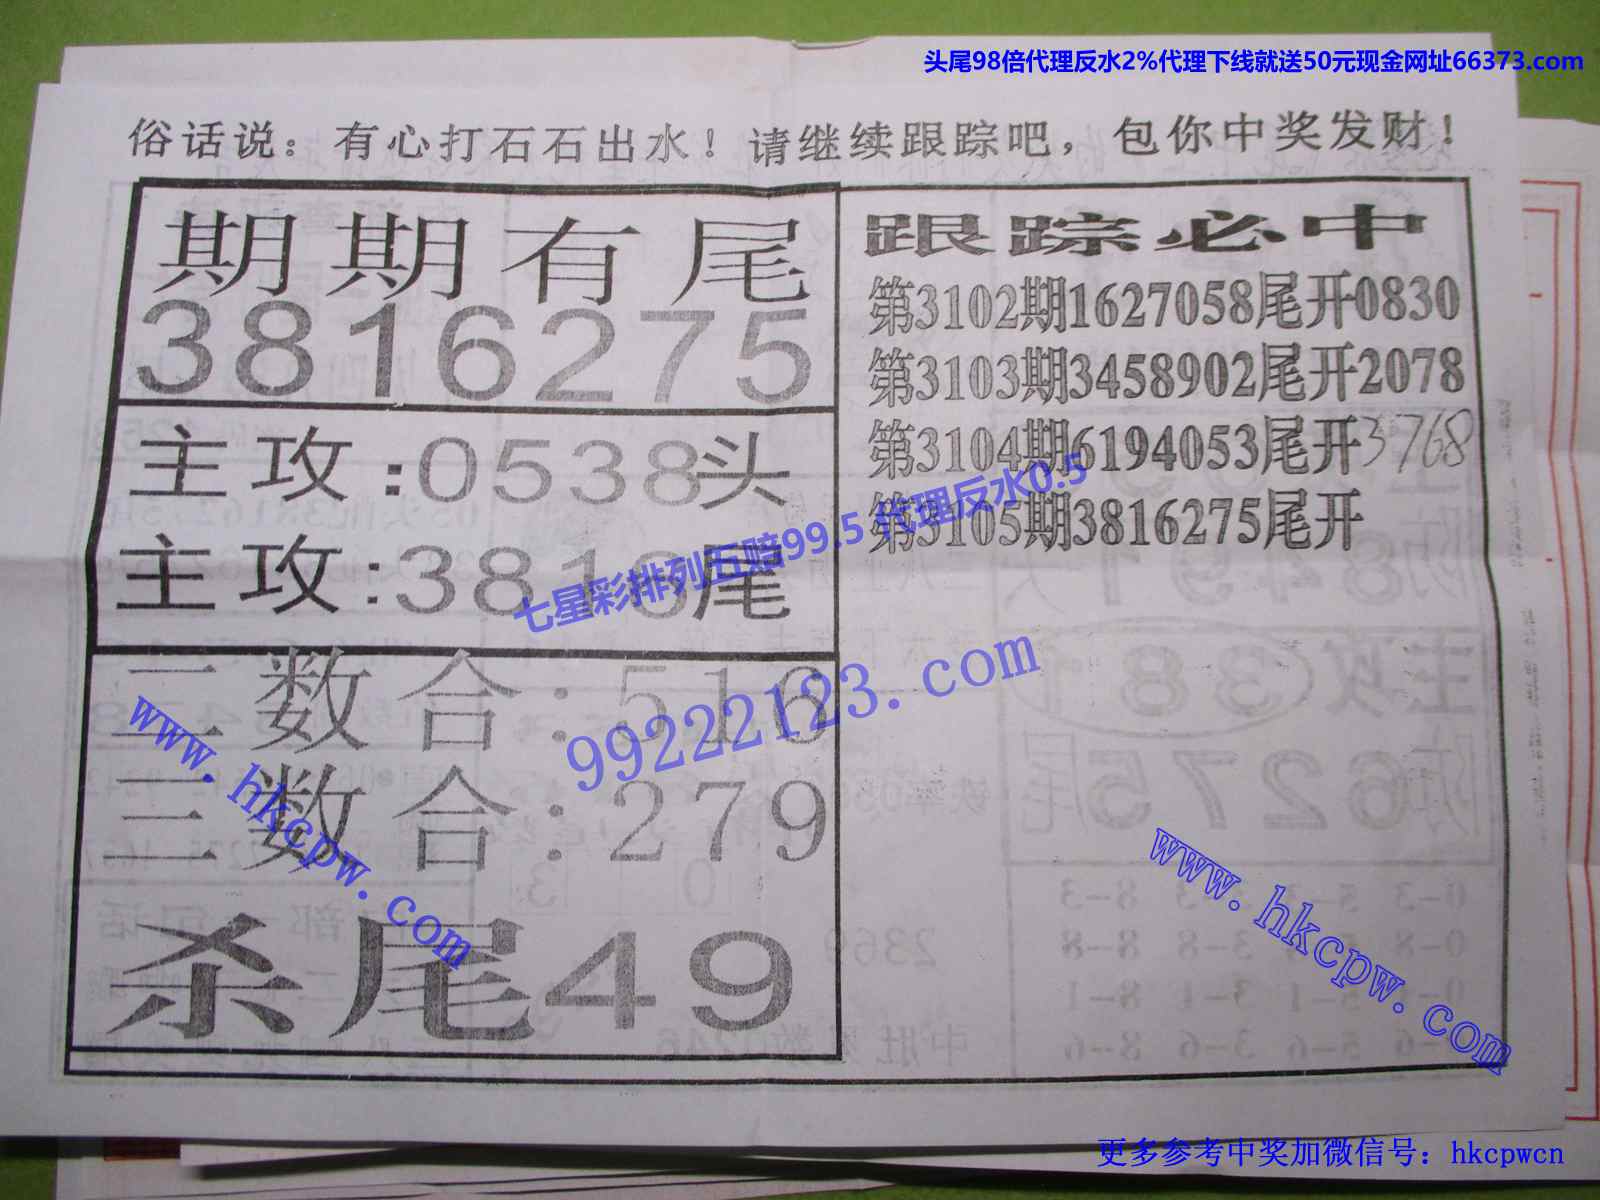 头尾98倍代理反水2%代理下线就送50元现金网址66373.com
俗话说：有心打石石出水！请继续跟踪吧，包你中奖发财！
期期有尾
3816275
主攻:0538头
主攻:3816尾
二数合:516
三数合:279
杀尾49
跟踪必中
第3102期1627058尾开0830
第3103期3458902尾开2078
第3104期6194053尾开3768
第3105期3816275尾开
七星彩排列五赔99.5 代理反水0.5
99222123.com
www.hkcpw.com
www.hkcpw.com
更多参考中奖加微信号：hkcpwcn